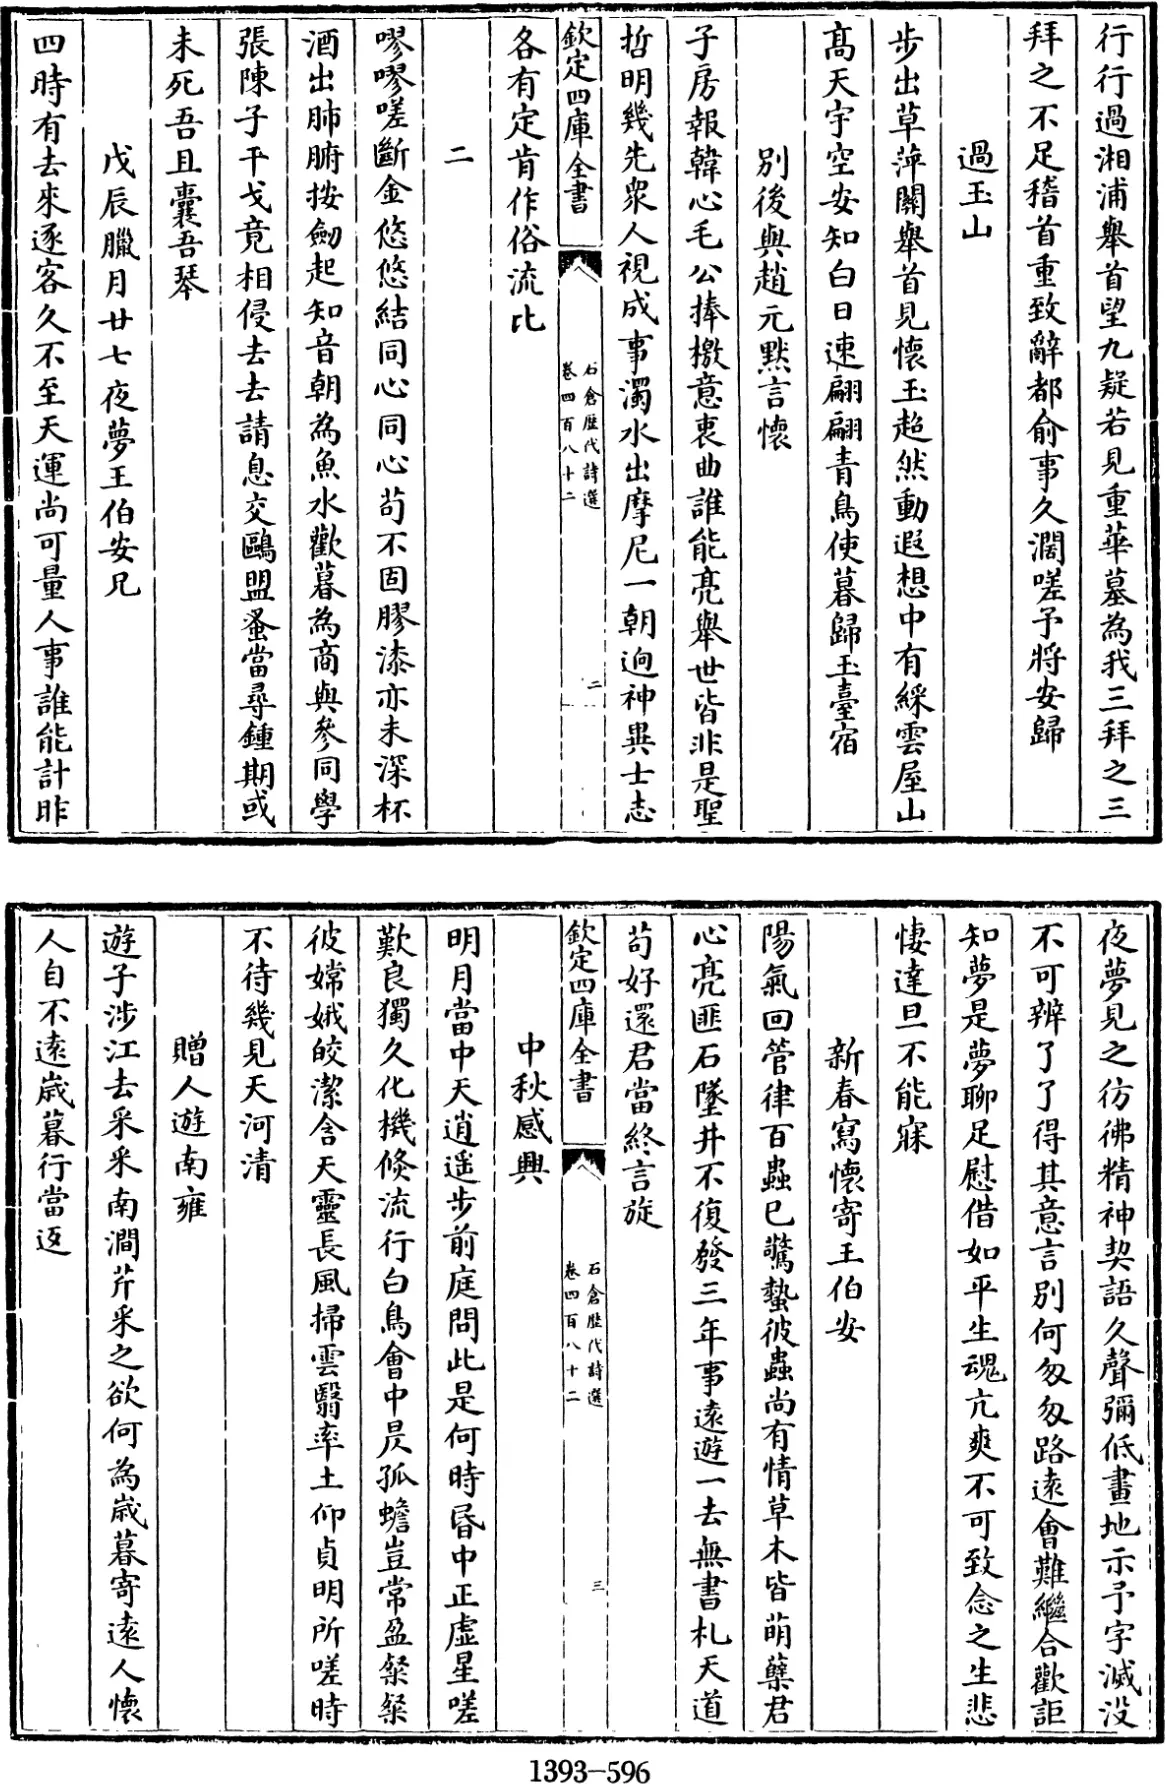 行行過湘浦舉首望九疑若見重華墓為我三拜之三
拜之不足稽首重致辭都俞事久濶嗟予將安歸
過玉山
步出草萍關舉首見懷玉超然動遐想中有綵雲屋山
髙天宇空安知白日速翩翩青鳥使暮歸玉臺宿
別後與趙元默言懷
子房報韓心毛公捧檄意衷曲誰能亮舉世皆非是聖
哲明幾先衆人視成事濁水出摩尼一朝逈神異士志
欽定四庫全書
石倉歴代詩選
卷四百八十二
二
各有定肯作俗流比
二
嘐嘐嗟斷金悠悠結同心同心茍不固膠漆亦未深杯
酒出肺腑按劒起知音朝為魚水歡暮為商與參同學
張陳子干戈竟相侵去去請息交鷗盟蚤當尋鍾期或
未死吾且囊吾琴
戊辰臘月廿七夜夢王伯安兄
四時有去來逐客久不至天運尚可量人事誰能計昨
夜夢見之彷彿精神契語久聲彌低畫地示予字滅没
不可辨了了得其意言别何匆匆路遠會難繼合歡詎
知夢是夢聊足慰借如平生魂亢爽不可致念之生悲
悽達旦不能寐
新春寫懷寄王伯安
陽氣回管律百蟲已驚蟄彼蟲尚有情草木皆萌蘖君
心亮匪石墜井不復發三年事遠遊一去無書札天道
茍好還君當終言旋
欽定四庫全書
石倉歴代詩選
卷四百八十二
三
中秋感興
明月當中天逍遥步前庭問此是何時昏中正虛星嗟
歎良獨久化機倐流行白鳥會中昃孤蟾豈常盈粲粲
彼嫦娥皎潔含天靈長風掃雲翳率土仰貞明所嗟時
不待幾見天河清
贈人遊南雍
遊子涉江去采采南澗芹采之欲何為歳暮寄遠人懷
人自不遠歳暮行當返
1393—596